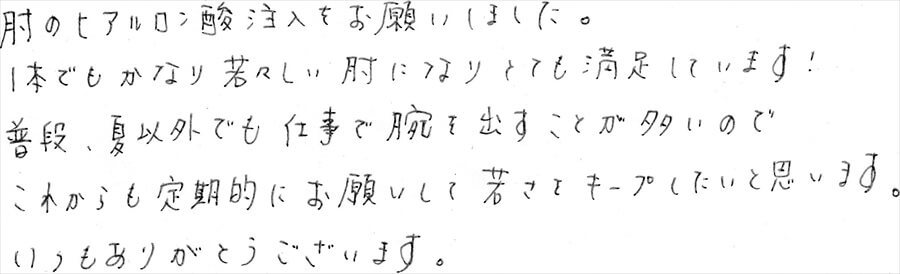 肘のヒアルロン酸注入をお願いしました。
1本でもかなり若々しい肘になりとても満足しています!
普段、夏以外でも仕事で腕を出すことが多いので
これからも定期的にお願いして若さをキープしたいと思います。
いつもありがとうございます。